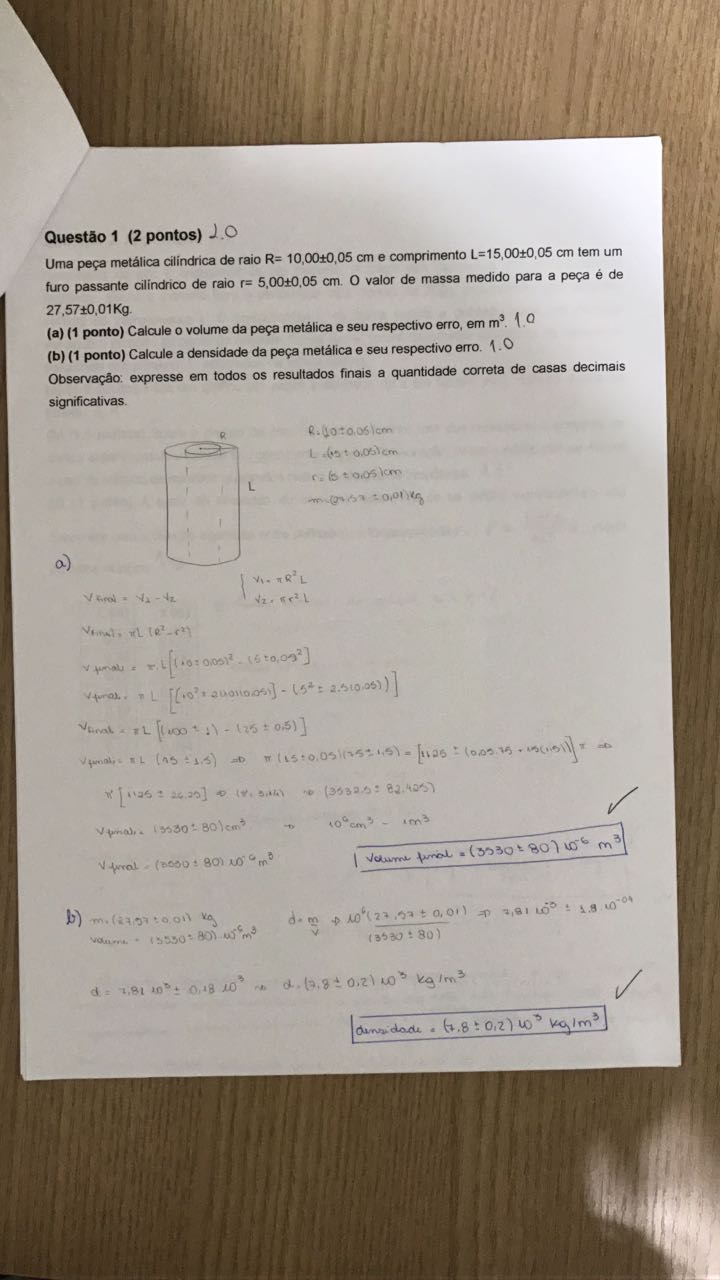 Questão 1 (2 pontos) 2.0
Uma peça metálica cilíndrica de raio R= 10,00±0,05 cm e comprimento L=15,00±0,05 cm tem um
furo passante cilíndrico de raio r= 5,00±0,05 cm. O valor de massa medido para a peça é de
27,57±0,01Kg.
(a) (1 ponto) Calcule o volume da peça metálica e seu respectivo erro, em m³. 1.0
(b) (1 ponto) Calcule a densidade da peça metálica e seu respectivo erro. 1.0
Observação: expresse em todos os resultados finais a quantidade correta de casas decimais
significativas.
R
L
R=(10±0,05)cm
L=(15±0,05)cm
r=(5±0,05)cm
m=(27,57±0,01)kg
a)
Vfinal = V1 - V2
V1= πR²L
V2= πr²L
Vfinal= πL(R²-r²)
Vfinal = π.L[(10±0,05)² - (5±0,05)²]
Vfinal= πL [(10²± 2(10)(0,05)] - (5² ± 2.5(0.05))]
Vfinal = πL[(100 ± 1) - (25 ± 0,5)]
Vfinal= πL (75 ± 1,5) ⇒ π(15±0,05)(75±1,5) = [1125 ± (0,05.75 + 15(1,5))]π ⇒
π[1125 ± 26,25] ⇒ (π: 3,14) ⇒ (3532,5 ± 82,425)
Vfinal= (3530±80)cm³ → 10⁶cm³ - 1m³
Vfinal = (3530 ± 80) 10⁻⁶m³
Volume final = (3530 ± 80) 10⁻⁶ m³
b) m=(27,57±0,01) kg
volume = (3530±80).10⁻⁶m³
d= m/v ⇒ 10⁶(27,57 ± 0,01)/(3530 ± 80) ⇒ 7,81 10⁻⁰³ ± 1.8 10⁻⁰⁴
d= 7,81 10³ ± 0,18 10³ ⇒ d=(7,8 ± 0,2) 10³ kg/m³
densidade = (7,8 ± 0,2) 10³ kg/m³